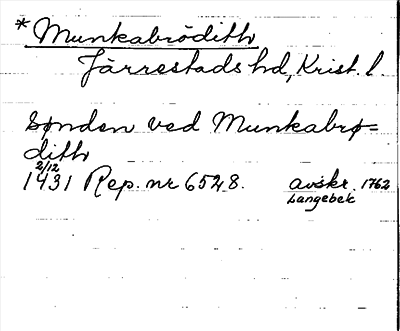 * Munkabrödith
Järrestads hd, Krist. l.
Sønden ved Munkabrø-
dith
2/12
1431 Rep. nr 6528. avskr. 1762
Langebek